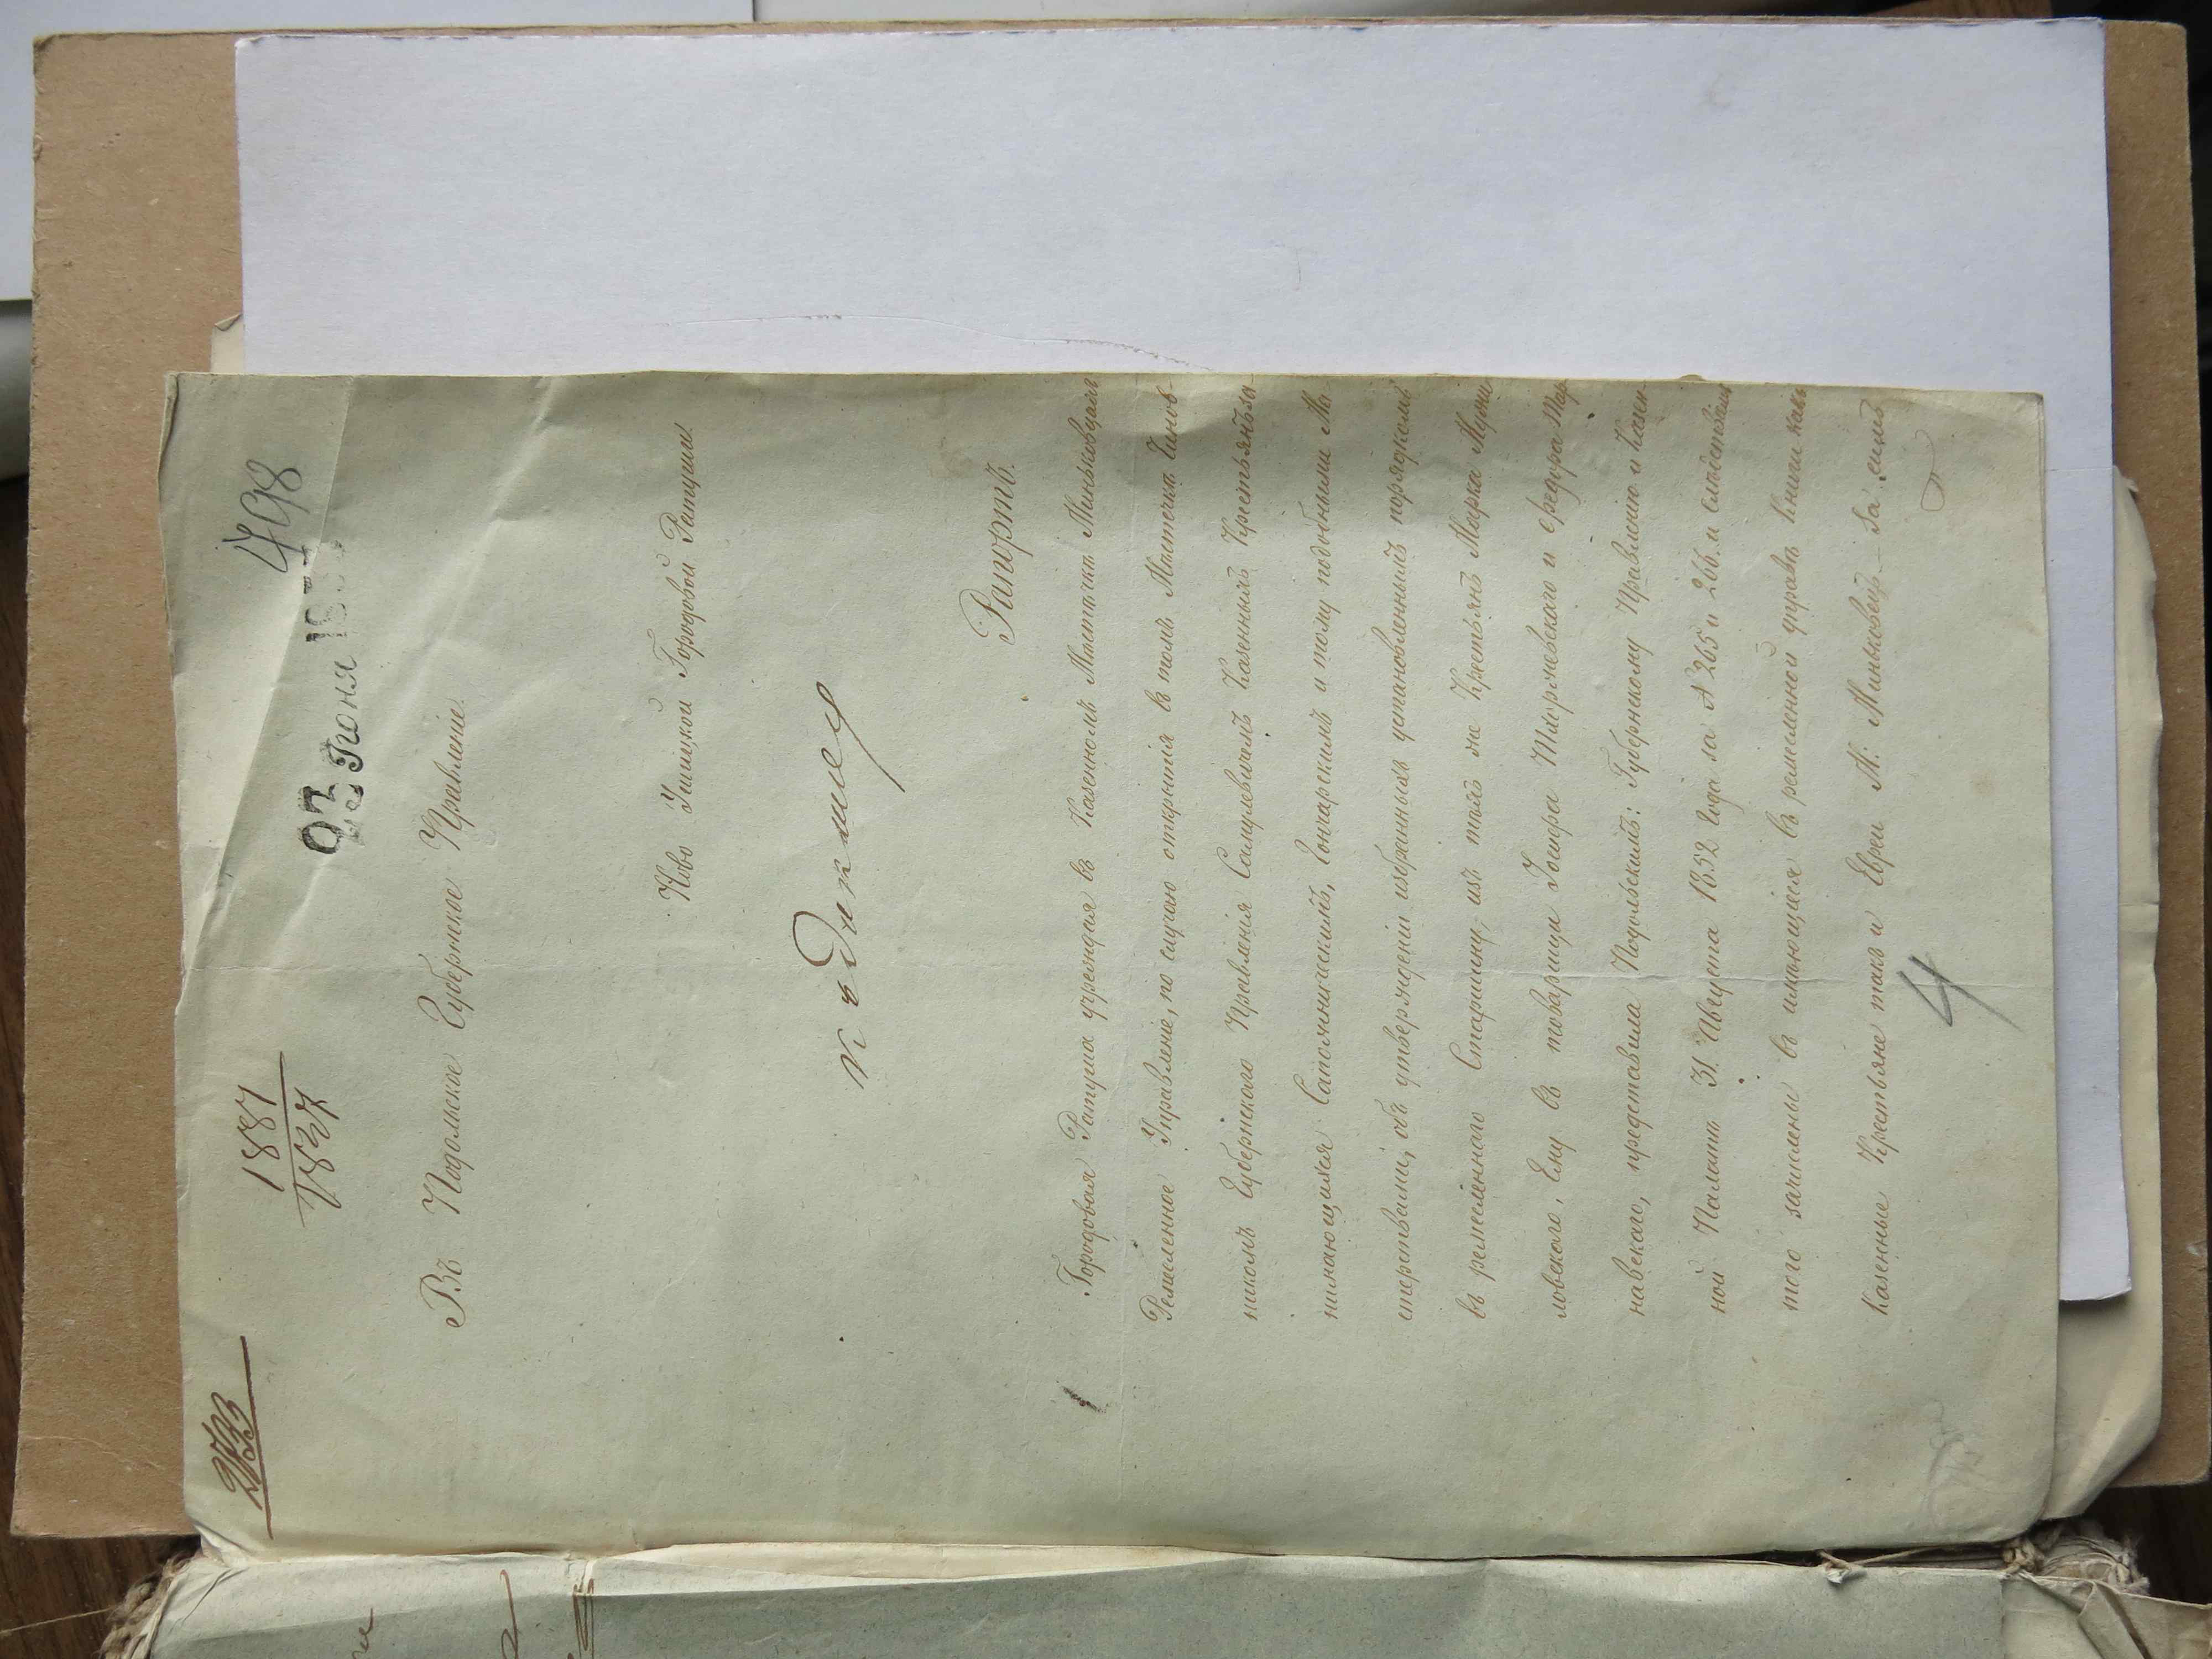 2733
1887
1837
498
23 Июня 185
Въ Подольское Губернское Правленіе.
Ново Ушицкой Городовой Ратуши.
Къ
Рапортъ.
Городовая Ратуша учреждая въ Казенномъ Мѣстечкѣ Миньковцахъ
Ремесленное Управленіе, по случаю открытія въ томъ Мѣстечкѣ Чинов-
никомъ Губернского Правленія Самулевичемъ Казенныхъ Крестьянъ за
нимающихся Сапожническимъ, Гончарскимъ и тому подобными Ма
стерствами, объ утвержденіи избранныхъ установленнымъ порядкомъ
въ ремесленнаго Старшину, изъ тѣхъ же Крестьянъ Марка
ловского, Ему въ товарищи Іосифа и Федора
навского, представила Подольскимъ: Губернскому Правленію и Казен-
ной Палатѣ 31. Августа 1852 года за № 265 и 266. и слѣдствіемъ
того зачислены въ имѣющіяся въ ремесленной управѣ книги какъ
Казенные Крестьяне такъ и Евреи М: Миньковецъ – За симъ
4